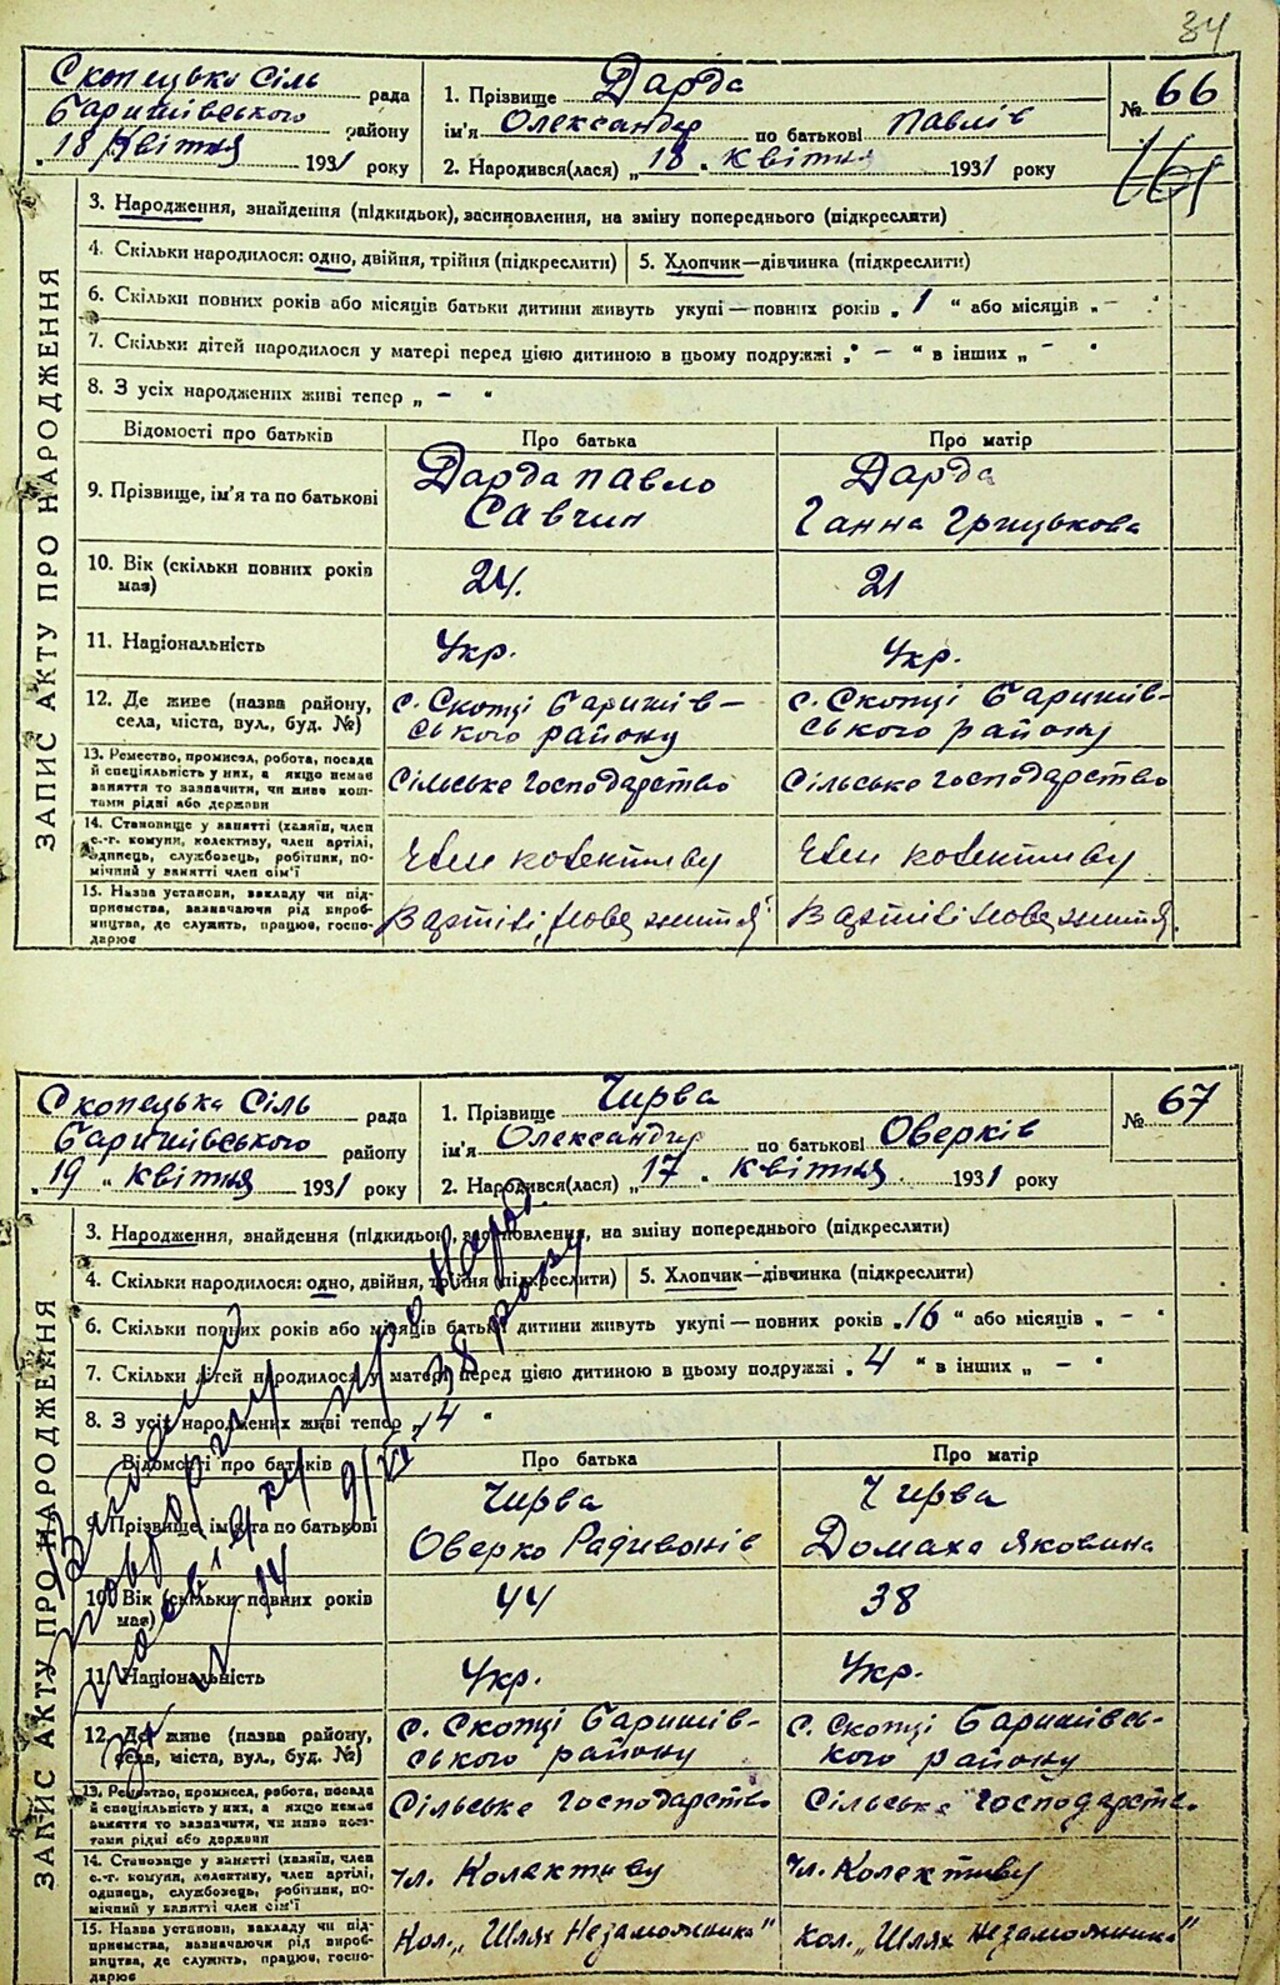 34
Скопецька Сіль рада
Баришівського району
„ 18 Квітня 1931 року
1. Прізвище Дарда
ім'я Олександр по батькові Павлів
2. Народився(лася) „ 18 " квітня 1931 року
№ 66
ЗАПИС АКТУ ПРО НАРОДЖЕННЯ
3. Народження, знайдення (підкидьок), засиновлення, на зміну попереднього (підкреслити)
4. Скільки народилося: одно, двійня, трійня (підкреслити)
5. Хлопчик—дівчинка (підкреслити)
6. Скільки повних років або місяців батьки дитини живуть укупі — повних років „ 1 " або місяців „ – "
7. Скільки дітей народилося у матері перед цією дитиною в цьому подружжі „ – " в інших „ – "
8. З усіх народжених живі тепер „ – "
Відомості про батьків
Про батька
Про матір
9. Прізвище, ім'я та по батькові
Дарда Павло
Савчин
Дарда
Ганна Грицькова
10. Вік (скільки повних років
має)
24.
21
11. Національність
Укр.
Укр.
12. Де живе (назва району,
села, міста, вул., буд. №)
с. Скопці Баришів–
ського району
с. Скопці Баришів-
ського району
13. Ремество, промисел, робота, посада
й спеціяльність у них, а якщо немає
заняття то зазначити, чи живе кош-
тами рідні або держави
Сільське господарство
Сільське господарство
14. Становище у занятті (хазяїн, член
с.-г. комуни, колективу, член артілі,
одинець, службовець, робітник, по-
мічний у занятті член сім'ї
Член колективу
Член колективу
15. Назва установи, закладу чи під-
приємства, зазначаючи рід вироб-
ництва, де служить, працює, госпо-
дарює
В артілі „Нове життя"
В артілі Нове життя.
Скопецька Сіль рада
Баришівського району
„ 19 " квітня 1931 року
1. Прізвище Чирва
ім'я Олександр по батькові Оверків
2. Народився(лася) „ 17 " квітня 1931 року
№ 67
ЗАПИС АКТУ ПРО НАРОДЖЕННЯ
3. Народження, знайдення (підкидьок), засиновлення, на зміну попереднього (підкреслити)
4. Скільки народилося: одно, двійня, трійня (підкреслити)
5. Хлопчик—дівчинка (підкреслити)
6. Скільки повних років або місяців батьки дитини живуть укупі — повних років „ 16 " або місяців „ – "
7. Скільки дітей народилося у матері перед цією дитиною в цьому подружжі „ 4 " в інших „ – "
8. З усіх народжених живі тепер „ 4 "
Відомості про батьків
Про батька
Про матір
9. Прізвище, ім'я та по батькові
Чирва
Оверко Радивонів
Чирва
Домаха Яковина
10. Вік (скільки повних років
має)
44
38
11. Національність
Укр.
Укр.
12. Де живе (назва району,
села, міста, вул., буд. №)
с. Скопці Баришів-
ського району
с. Скопці Баришівсь-
кого району
13. Ремество, промисел, робота, посада
й спеціяльність у них, а якщо немає
заняття то зазначити, чи живе кош-
тами рідні або держави
Сільське господарство
Сільське господарство
14. Становище у занятті (хазяїн, член
с.-г. комуни, колективу, член артілі,
одинець, службовець, робітник, по-
мічний у занятті член сім'ї
Чл. Колективу
Чл. Колективу
15. Назва установи, закладу чи під-
приємства, зазначаючи рід вироб-
ництва, де служить, працює, госпо-
дарює
Кол. „Шлях Незаможника"
Кол. „Шлях Незаможника"
про народ.
38 року